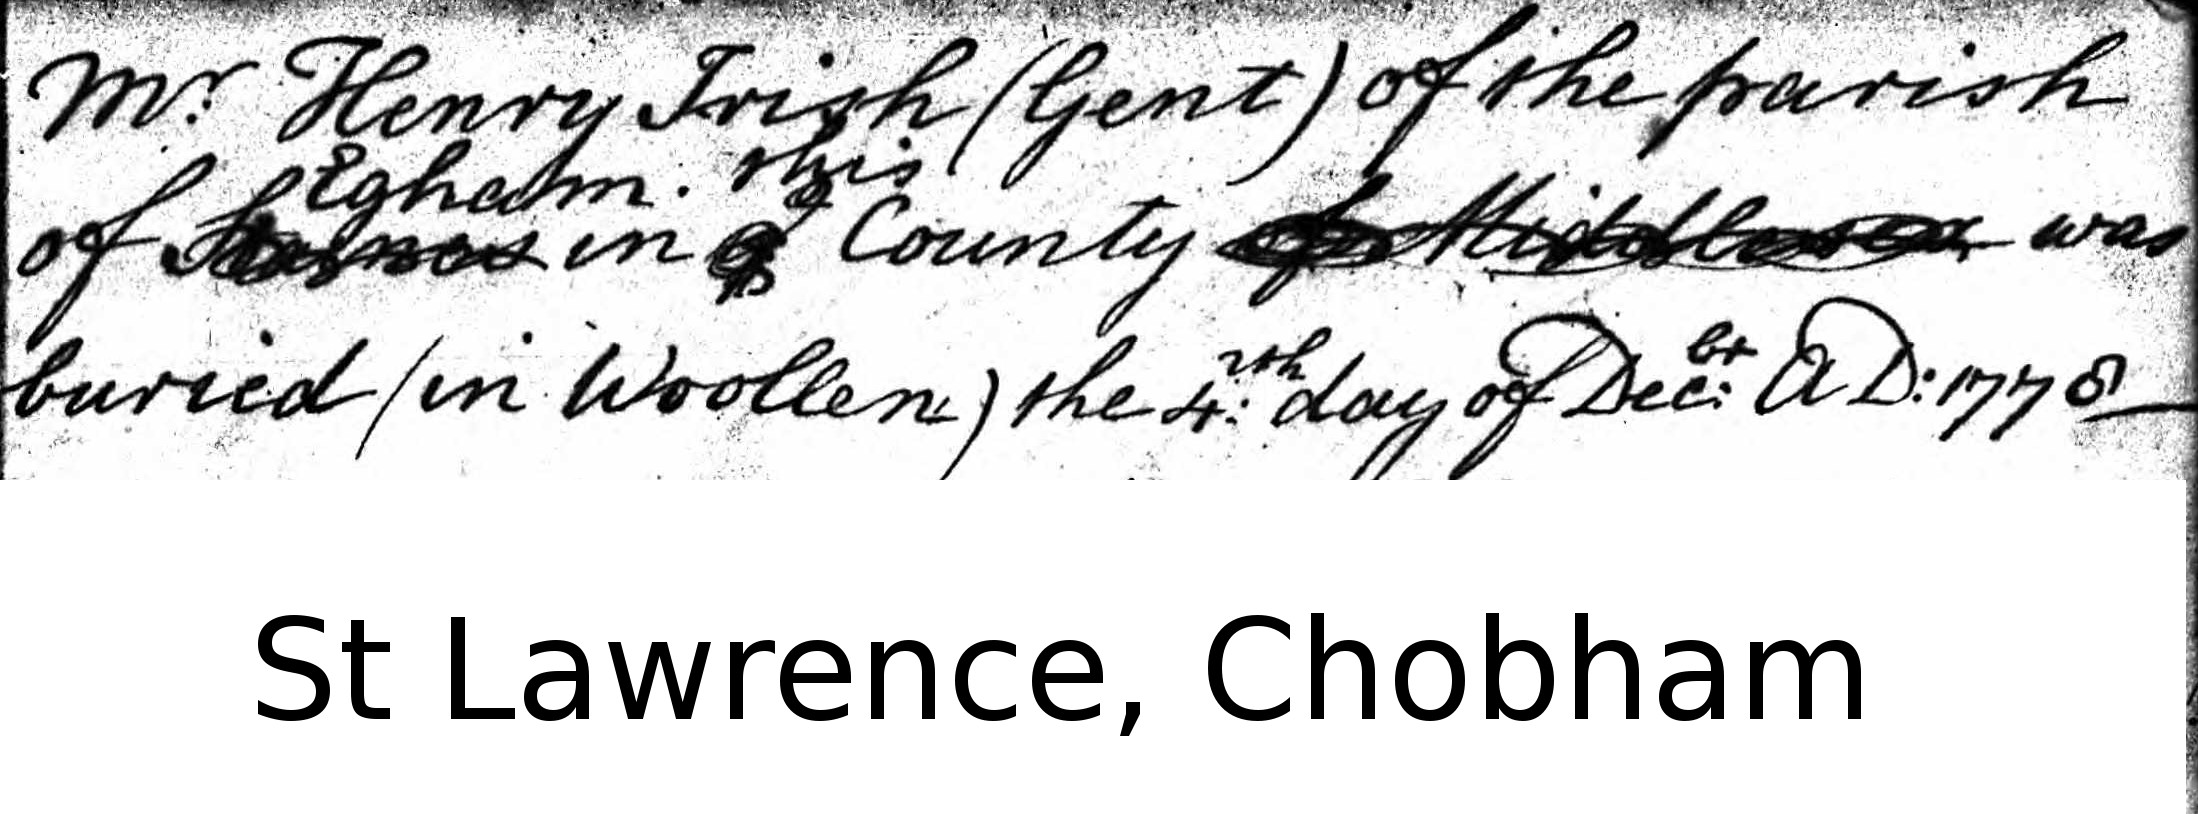 Mr Henry Irish (Gent) of the parish
Egham. this
of Staines in County of Middlesex was
buried (in Woollen) the 4th: day of Decbr: AD: 1778
St Lawrence, Chobham